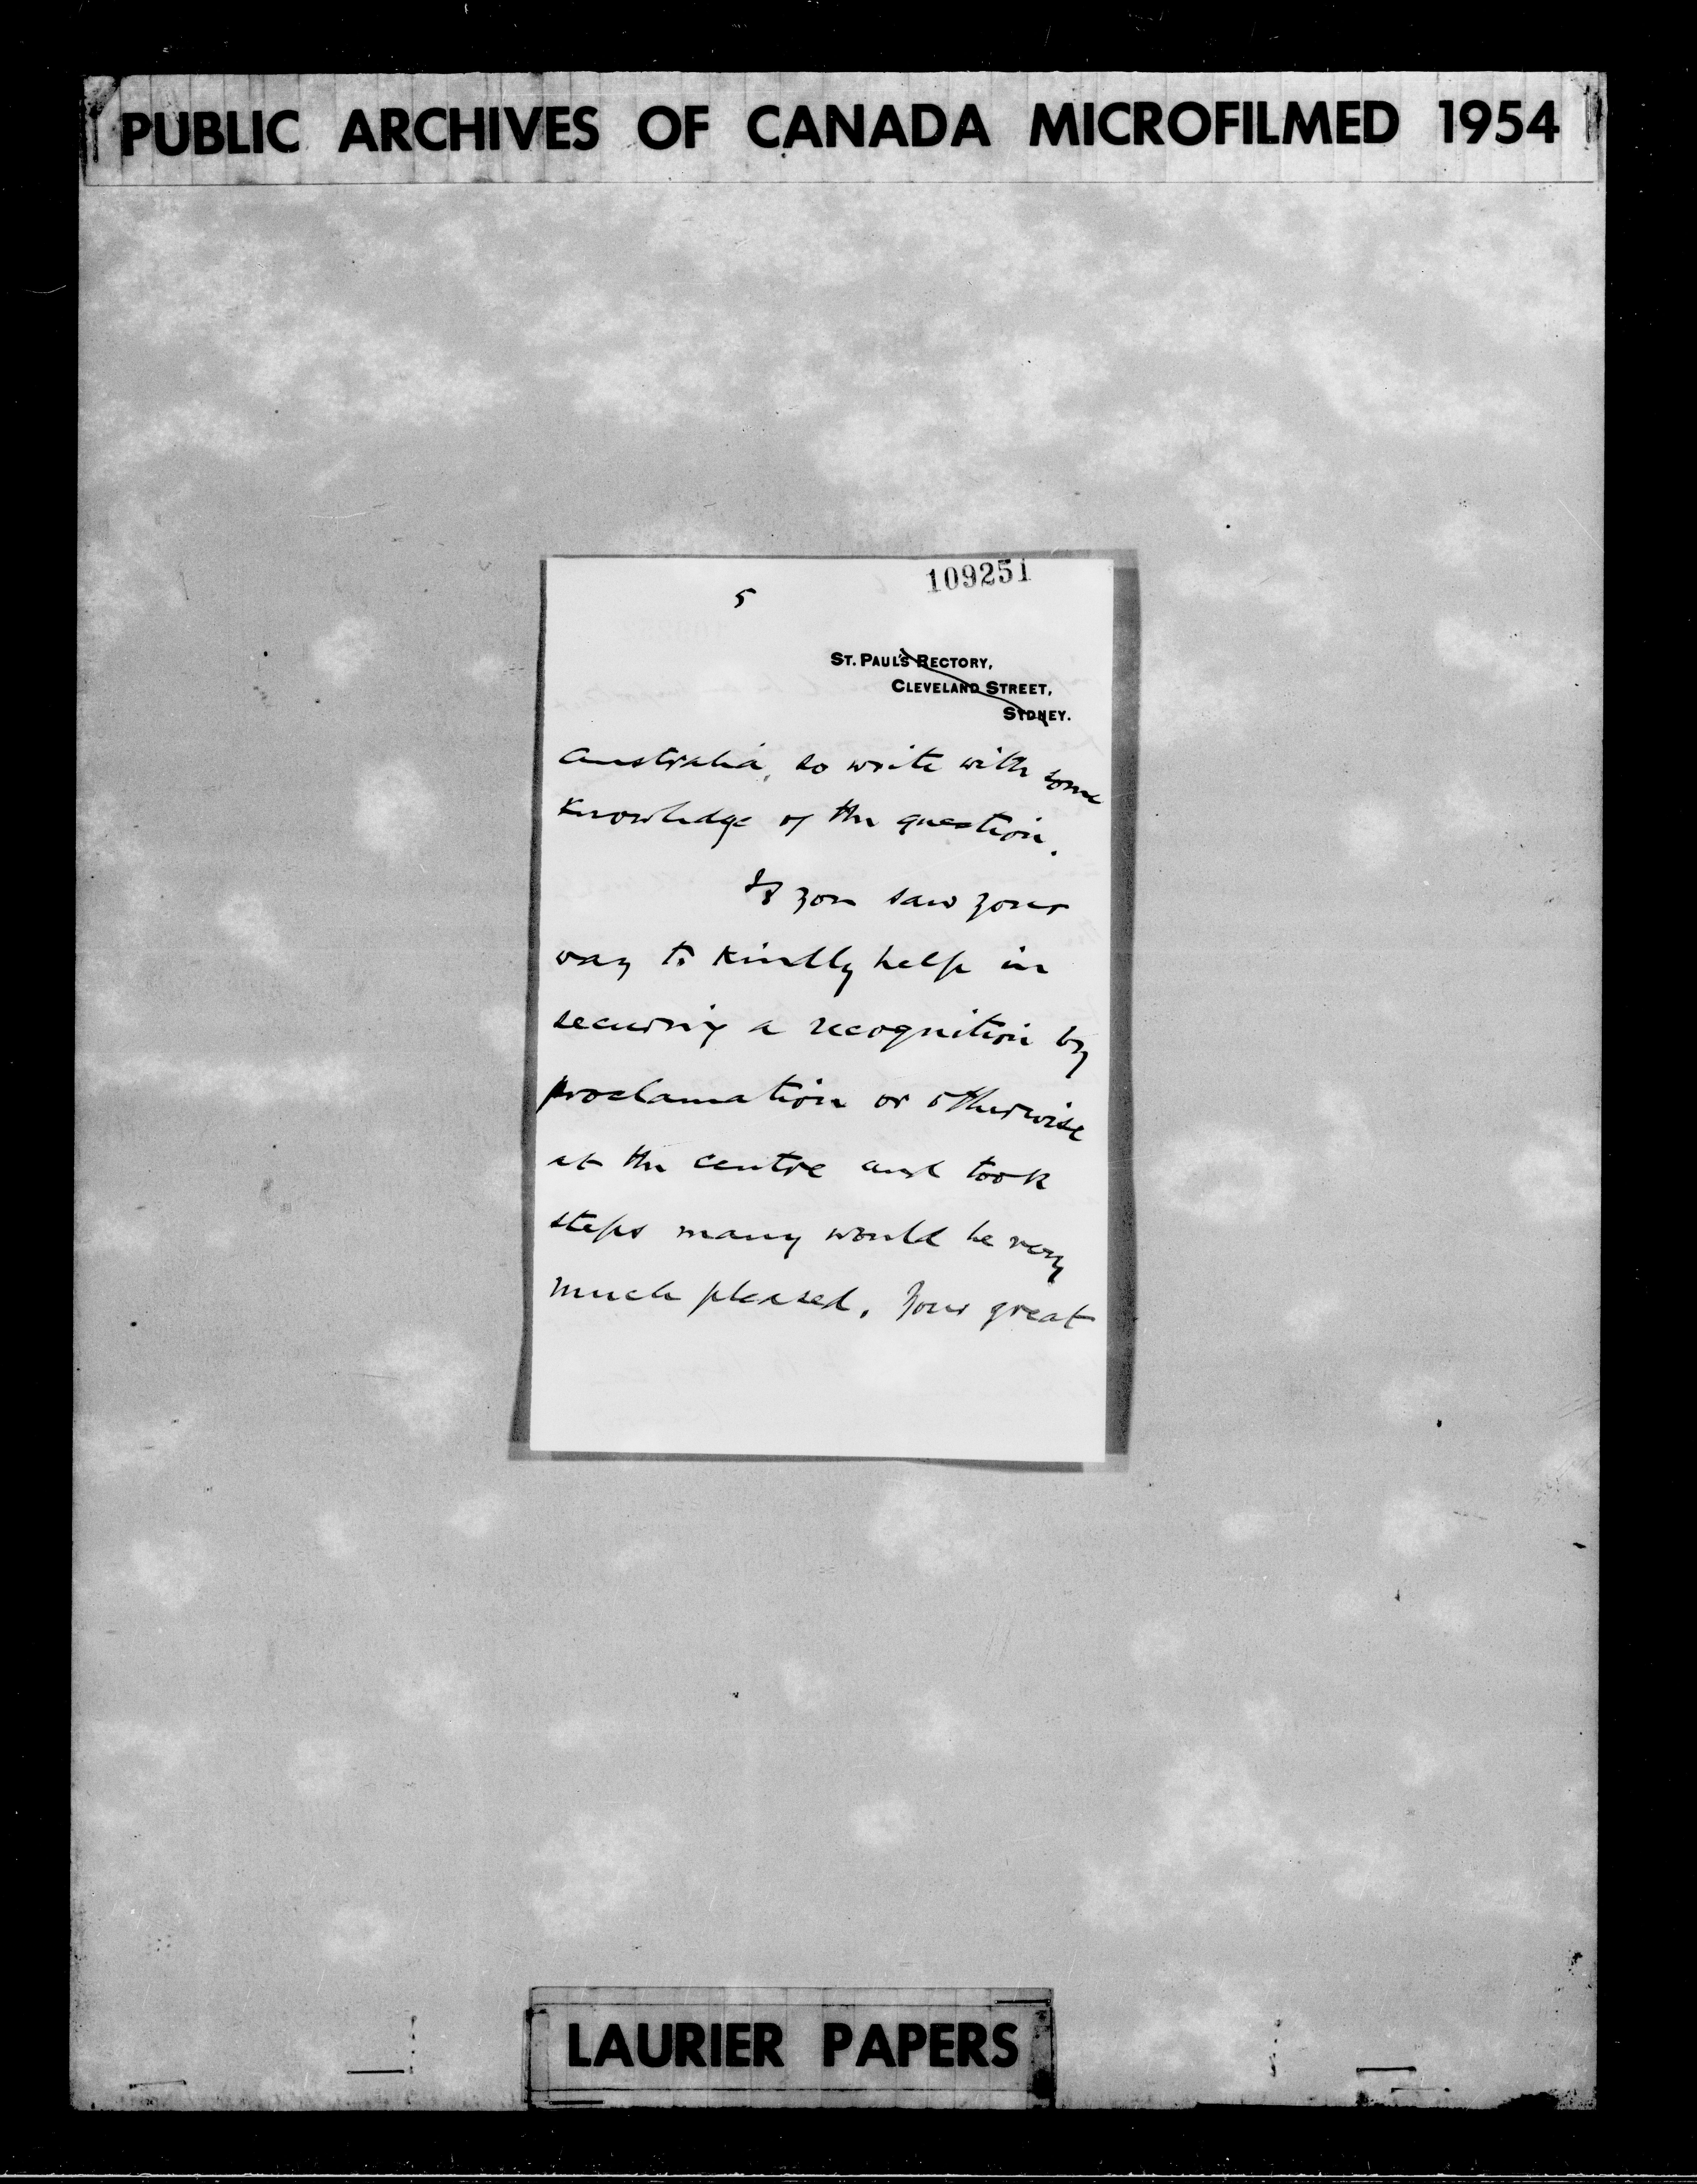 PUBLIC ARCHIVES OF CANADA MICROFILMED 1954
109251
5
ST. PAUL'S RECTORY,
CLEVELAND STREET,
SYDNEY.
Australia, so write with some
knowledge of the question.
If you saw your
way to kindly help in
securing a recognition by
proclamation or otherwise
at the centre and took
steps many would be very
much pleased. Your great
LAURIER PAPERS